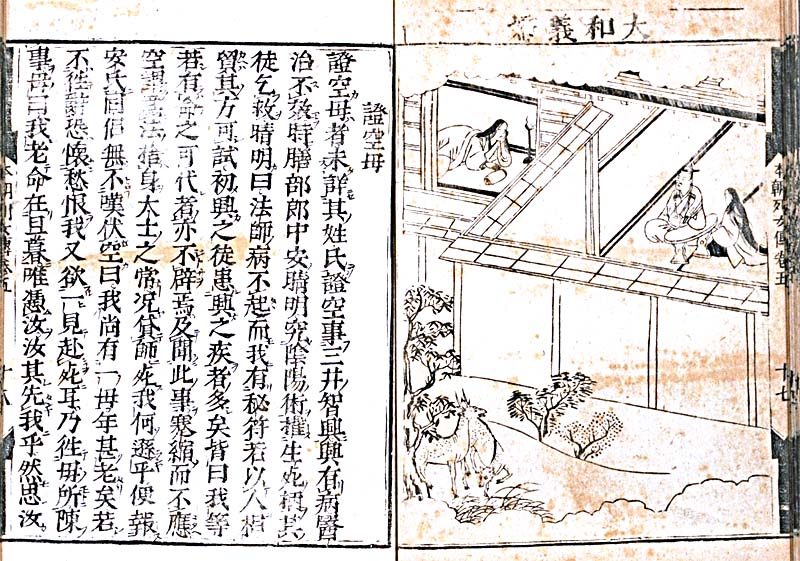 大和義
本朝列女傳卷五
十七
證空母
證空母者未詳其姓氏證空事三井智興興有病醫
治不效時膳部郎中安晴明究陰陽術權生死柄其
徒乞救晴明曰法師病不起而我有秘符若以人相
貿其方可試初興之徒患興之疾者多矣皆曰我等
若有命之可代者亦不辭焉及聞此事寒縮而不應
空謂爲法捨身大士之常况貸師死我何遜乎便報
安氏同侶無不嘆伏空曰我尚有一母年甚老矣若
不徃謝恐懷愁恨我又欲一見赴死耳乃徃母所陳
事母曰我老命在旦暮唯憑汝汝其先我乎然思汝
本朝列女傳卷五
十八